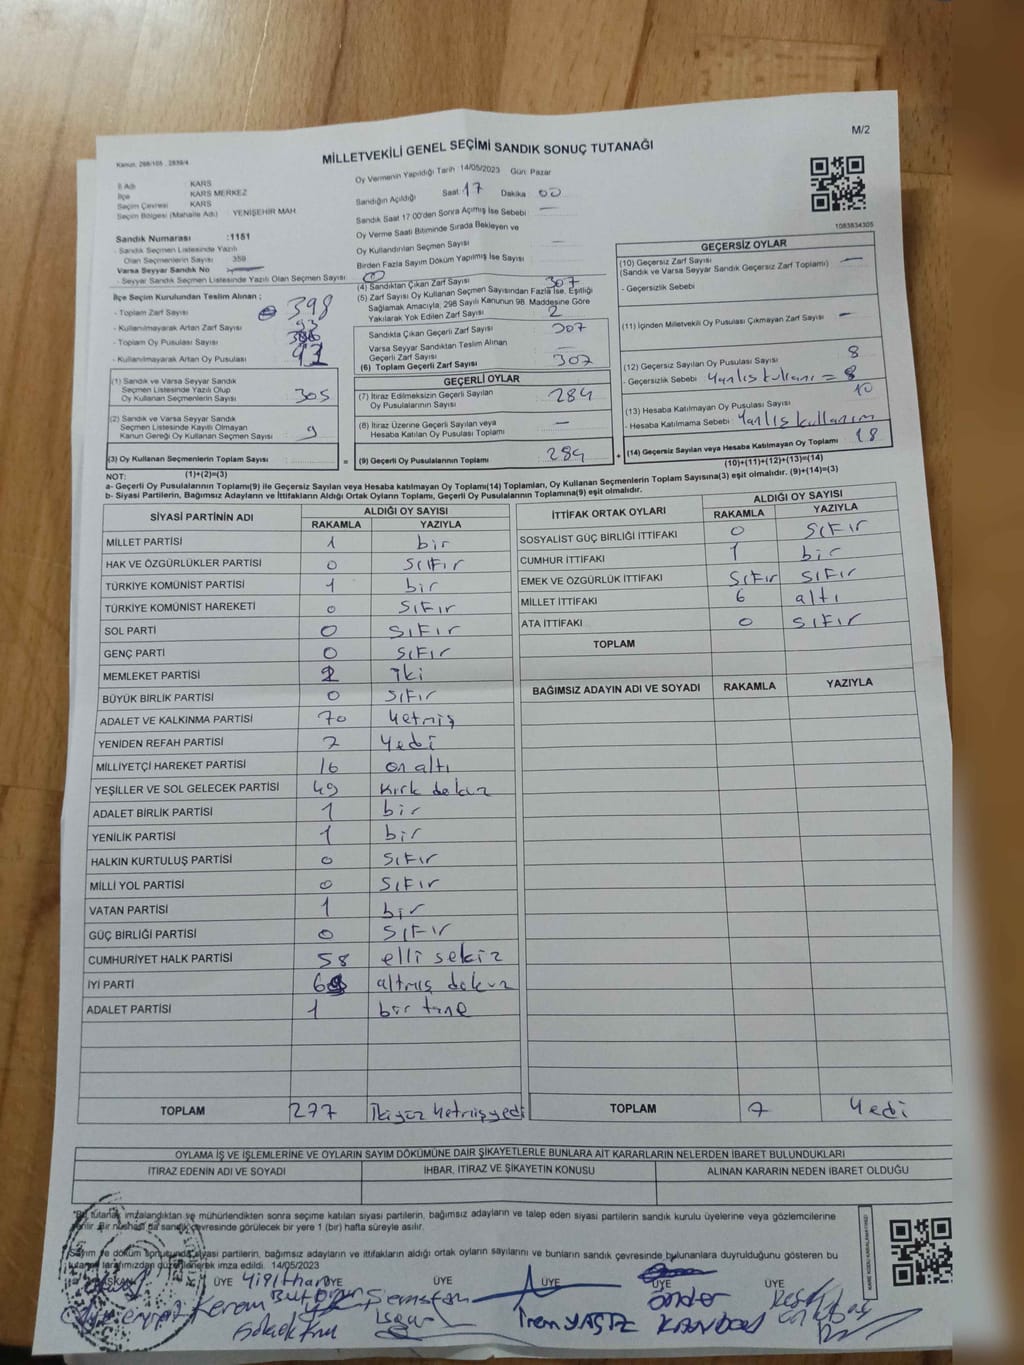 M/2
Kanun, 298/105 , 2839/4
MİLLETVEKİLİ GENEL SEÇİMİ SANDIK SONUÇ TUTANAĞI
İl Adı : KARS
İlçe : KARS MERKEZ
Seçim Çevresi : KARS
Seçim Bölgesi (Mahalle Adı) : YENİŞEHİR MAH
Sandık Numarası :1151
- Sandık Seçmen Listesinde Yazılı
Olan Seçmenlerin Sayısı 359
Varsa Seyyar Sandık No
- Seyyar Sandık Seçmen Listesinde Yazılı Olan Seçmen Sayısı: 0
İlçe Seçim Kurulundan Teslim Alınan ;
- Toplam Zarf Sayısı 398
- Kullanılmayarak Artan Zarf Sayısı 93
- Toplam Oy Pusulası
- Kullanılmayarak Artan Oy Pusulası
(1) Sandık ve Varsa Seyyar Sandık
Seçmen Listesinde Yazılı Olup
Oy Kullanan Seçmenlerin Sayısı 305
(2) Sandık ve Varsa Seyyar Sandık
Seçmen Listesinde Kayıtlı Olmayan
Kanun Gereği Oy Kullanan Seçmen Sayısı 9
(3) Oy Kullanan Seçmenlerin Toplam Sayısı
(1)+(2)=(3)
Oy Vermenin Yapıldığı Tarih 14/05/2023 Gün: Pazar
Sandığın Açıldığı Saat 17 Dakika 00
Sandık Saat 17:00'den Sonra Açımış İse Sebebi —
Oy Verme Saati Bitiminde Sırada Bekleyen ve
Oy Kullandırılan Seçmen Sayısı —
Birden Fazla Sayım Döküm Yapılmış İse Sayısı —
(4) Sandıktan Çıkan Zarf Sayısı 307
(5) Zarf Sayısı Oy Kullanan Seçmen Sayısından Fazla İse, Eşitliği
Sağlamak Amacıyla, 298 Sayılı Kanunun 98. Maddesine Göre
Yakılarak Yok Edilen Zarf Sayısı 2
Sandıkta Çıkan Geçerli Zarf Sayısı 307
Varsa Seyyar Sandıktan Teslim Alınan
Geçerli Zarf Sayısı —
(6) Toplam Geçerli Zarf Sayısı 307
GEÇERLİ OYLAR
(7) İtiraz Edilmeksizin Geçerli Sayılan
Oy Pusulalarının Sayısı 284
(8) İtiraz Üzerine Geçerli Sayılan veya
Hesaba Katılan Oy Pusulası Toplamı —
= (9) Geçerli Oy Pusulalarının Toplamı 284 +
1083834305
GEÇERSİZ OYLAR
(10) Geçersiz Zarf Sayısı —
(Sandık ve Varsa Seyyar Sandık Geçersiz Zarf Toplamı)
- Geçersizlik Sebebi
(11) İçinden Milletvekili Oy Pusulası Çıkmayan Zarf Sayısı —
(12) Geçersiz Sayılan Oy Pusulası Sayısı 8
- Geçersizlik Sebebi Yanlış kullanı = 8
(13) Hesaba Katılmayan Oy Pusulası Sayısı 10
- Hesaba Katılmama Sebebi Yanlış kullanım
(14) Geçersiz Sayılan veya Hesaba Katılmayan Oy Toplamı 18
(10)+(11)+(12)+(13)=(14)
NOT:
a- Geçerli Oy Pusulalarının Toplamı(9) ile Geçersiz Sayılan veya Hesaba katılmayan Oy Toplamı(14) Toplamları, Oy Kullanan Seçmenlerin Toplam Sayısına(3) eşit olmalıdır. (9)+(14)=(3)
b- Siyasi Partilerin, Bağımsız Adayların ve İttifakların Aldığı Ortak Oyların Toplamı, Geçerli Oy Pusulalarının Toplamına(9) eşit olmalıdır.
SİYASİ PARTİNİN ADI ALDIĞI OY SAYISI
RAKAMLA YAZIYLA
MİLLET PARTİSİ 1 bir
HAK VE ÖZGÜRLÜKLER PARTİSİ 0 sıfır
TÜRKİYE KOMÜNİST PARTİSİ 1 bir
TÜRKİYE KOMÜNİST HAREKETİ 0 sıfır
SOL PARTİ 0 sıfır
GENÇ PARTİ 0 sıfır
MEMLEKET PARTİSİ 2 iki
BÜYÜK BİRLİK PARTİSİ 0 sıfır
ADALET VE KALKINMA PARTİSİ 70 yetmiş
YENİDEN REFAH PARTİSİ 7 yedi
MİLLİYETÇİ HAREKET PARTİSİ 16 on altı
YEŞİLLER VE SOL GELECEK PARTİSİ 49 kırk dokuz
ADALET BİRLİK PARTİSİ 1 bir
YENİLİK PARTİSİ 1 bir
HALKIN KURTULUŞ PARTİSİ 0 sıfır
MİLLİ YOL PARTİSİ 0 sıfır
VATAN PARTİSİ 1 bir
GÜÇ BİRLİĞİ PARTİSİ 0 sıfır
CUMHURİYET HALK PARTİSİ 58 elli sekiz
İYİ PARTİ 69 altmış dokuz
ADALET PARTİSİ 1 bir tane
TOPLAM 277 ikiyüz yetmişyedi
İTTİFAK ORTAK OYLARI ALDIĞI OY SAYISI
RAKAMLA YAZIYLA
SOSYALİST GÜÇ BİRLİĞİ İTTİFAKI 0 sıfır
CUMHUR İTTİFAKI 1 bir
EMEK VE ÖZGÜRLÜK İTTİFAKI sıfır sıfır
MİLLET İTTİFAKI 6 altı
ATA İTTİFAKI 0 sıfır
TOPLAM
BAĞIMSIZ ADAYIN ADI VE SOYADI RAKAMLA YAZIYLA
TOPLAM 7 yedi
OYLAMA İŞ VE İŞLEMLERİNE VE OYLARIN SAYIM DÖKÜMÜNE DAİR ŞİKAYETLERLE BUNLARA AİT KARARLARIN NELERDEN İBARET BULUNDUKLARI
İTİRAZ EDENİN ADI VE SOYADI İHBAR, İTİRAZ VE ŞİKAYETİN KONUSU ALINAN KARARIN NEDEN İBARET OLDUĞU
tutanak imzalandıktan ve mühürlendikten sonra seçime katılan siyasi partilerin, bağımsız adayların ve talep eden siyasi partilerin sandık kurulu üyelerine veya gözlemcilerine
verilir. Bir nüshası da sandık çevresinde görülecek bir yere 1 (bir) hafta süreyle asılır.
Sayım ve döküm sonucunda siyasi partilerin, bağımsız adayların ve ittifakların aldığı ortak oyların sayılarını ve bunların sandık çevresinde bulunanlara duyrulduğunu gösteren bu
tutanak tarafımızdan düzenlenerek imza edildi. 14/05/2023
BAŞKAN ÜYE ÜYE ÜYE ÜYE ÜYE
Kerem
İrem
önder